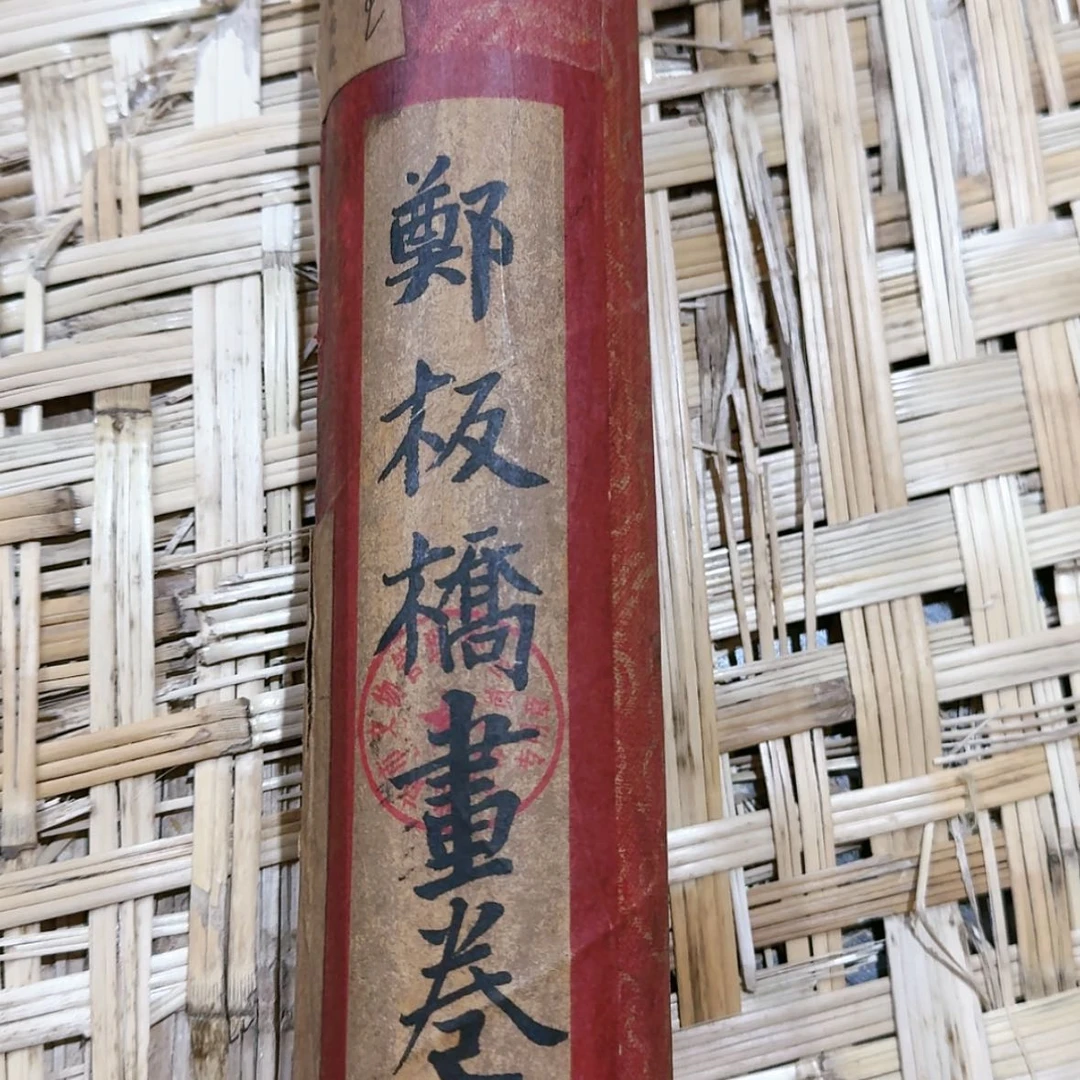 鄭板橋畫卷